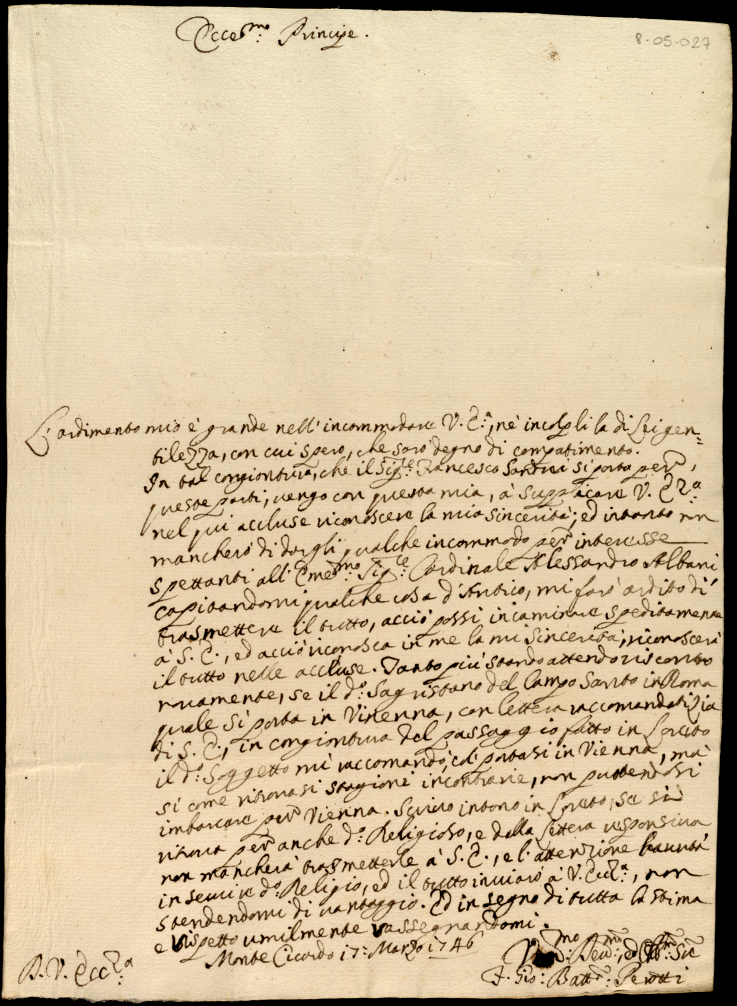 Ecce.mo Principe.
8-05-027
L'ardimento mio è grande nell'incommodare V. E.a, nè incolpli la di Lei gen=
tilezza, con cui spero, che sarò degno di compatimento.
In tal congiontura, che il Sig.le Francesco Santini si porta per
queste parti, vengo con questa mia, à supplicare V. Ecc.a
nel qui accluse riconoscere la mia sincerità; ed intanto non
mancherò di dargli qualche incommodo per interesse
spettanti all'Eme.mo Sig.le Cardinale Alessandro Albani
capitandomi qualche cosa d'Antico, mi farò ardito di
trasmettere il tutto, acciò possi incaminare speditamente
à S. E., ed acciò riconosca in me la mi Sincerità, riconoscerà
il tutto nelle accluse. Tanto più stando attendo riscontro
novamente, se il d.o Sagristano del Campo Santo in Roma
quale si porta in Vienna, con lettera raccomandatizia
di S. E., in congiontura del passaggio fatto in Loreto
il d.o Soggetto mi raccomandò, di portasi in Vienna, mà
si come ritrovasi stagione incontrarie, non puttendosi
imbarcare per Vienna. Scrivo intorno in Loreto, se si
ritrova per anche d.o Religioso, e dalla lettera responsiva
non mancherà trasmetterle à S. E., e l'attenzione hauuta
in servire d.o Religio, ed il tutto inviarò à V. Ecc.a, non
stendendomi di vantaggio. Ed in segno di tutta la stima
e rispetto umilmente rassegnandomi.
Monte Cicardo 17: Marzo 1746
D. V. Ecc.za
F. Gio: Batt.a Perotti